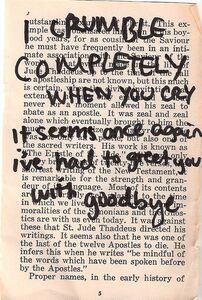 I CRUMBLE
COMPLETELY
WHEN YOU CRY
it seems once again
i've had to greet you
with goodbye
this ex-
boy-
hood years for a cousin of the Saviour
he must have frequently been in an inti-
mate
to apostleship are not known, but this much
is certain
never moment allowed his zeal to
abate as an apostle. It was zeal and zeal
alone which eventually brought to him the
but also
the sacred writers. His work is known as
The Epistle of
writing of the New Testament
is remarkable for the strength and gran-
deur of its contents
in which we live
moralities of the and Gnos-
tics are with us today. It was against
these that St. Jude Thaddeus directed his
writings. It seems also that he was one of
the last of the twelve Apostles to die. He
infers this when he writes "be mindful of
the words which have been spoken before
by the Apostles."
Proper names, in the early history of
5